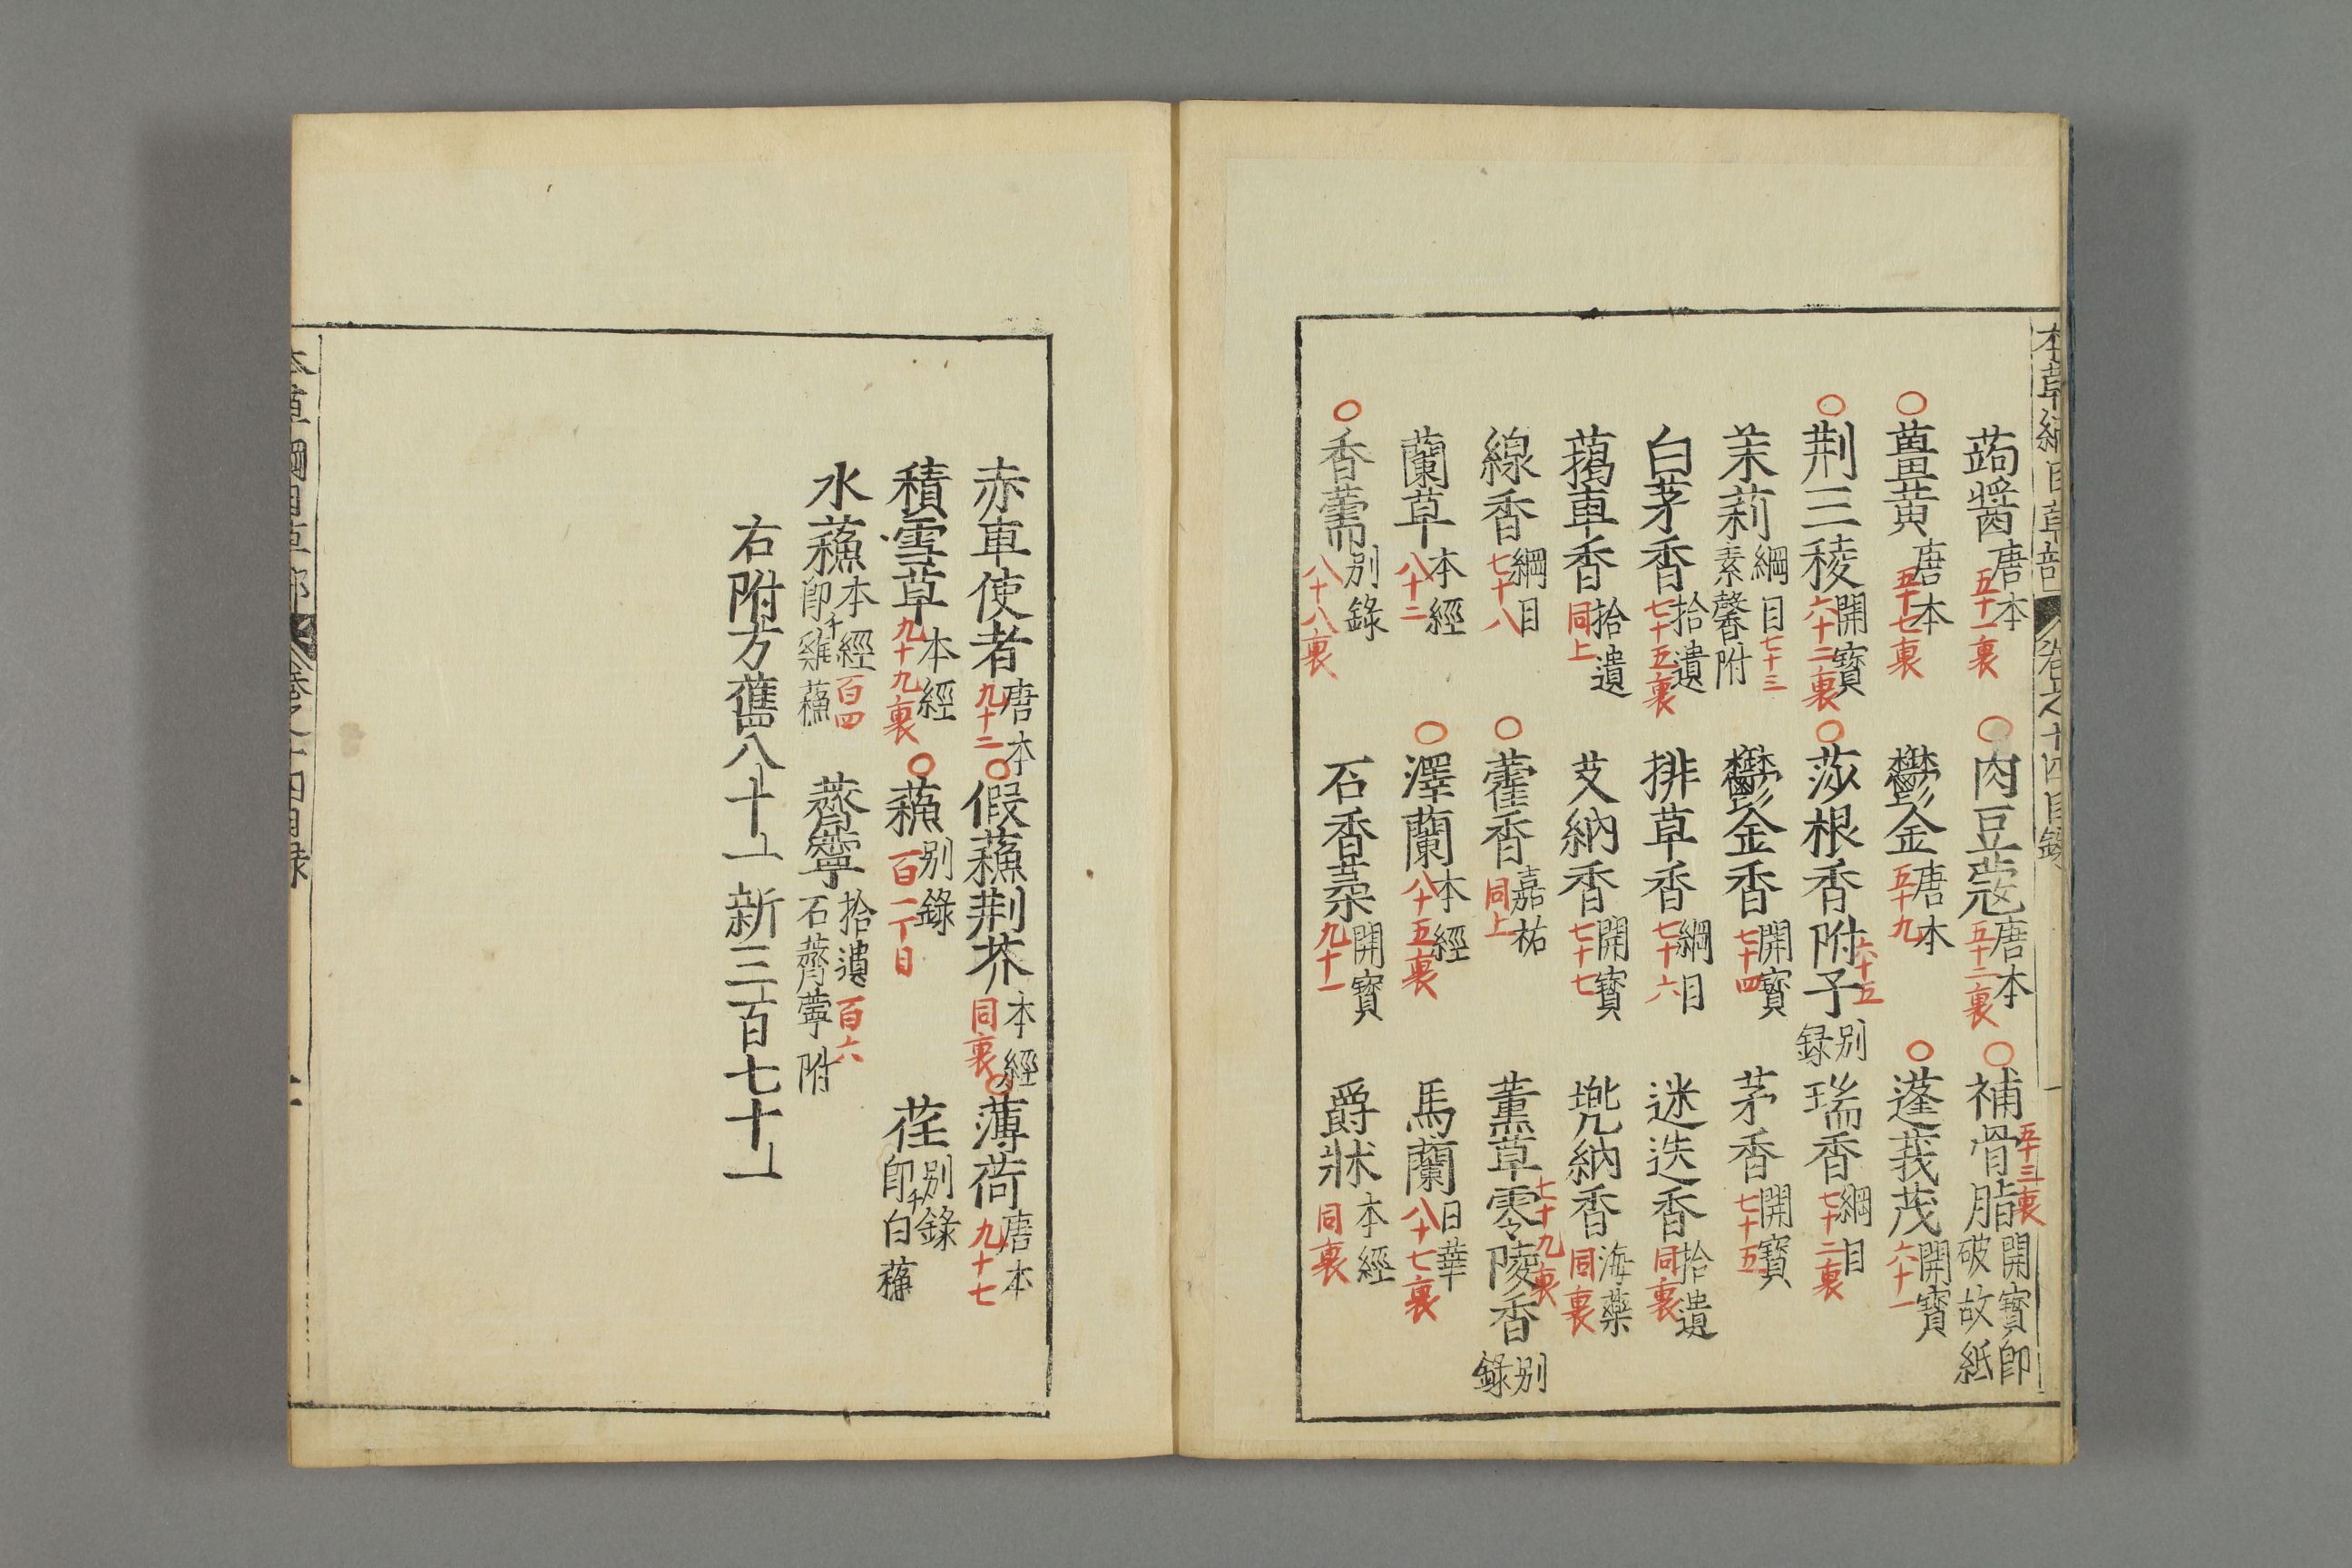 本草綱目草部 卷之十四目錄 一
蒟醬 唐本 五十一裏 ○肉豆蔻 唐本 五十二裏 ○補骨脂 開寶即破故紙 五十三裏
○薑黃 唐本 五十七裏 鬱金 唐本 五十九 ○蓬莪茂 開寶 六十一
○荆三稜 開寶 六十二裏 ○莎根香附子 別録 六十五 瑞香 綱目 七十二裏
茉莉 綱目 素馨附 七十三 鬱金香 開寶 七十四 茅香 開寶 七十五
白茅香 拾遺 七十五裏 排草香 綱目 七十六 迷迭香 拾遺 同裏
藒車香 拾遺 同上 艾納香 開寶 七十七 兠納香 海藥 同裏
線香 綱目 七十八 ○藿香 嘉祐 同上 薰草零陵香 別録 七十九裏
蘭草 本經 八十二 ○澤蘭 本經 八十五裏 馬蘭 日華 八十七裏
○香薷 別錄 八十八裏 石香葇 開寶 九十一 爵牀 本經 同裏
赤車使者 唐本 九十二 ○假蘓荆芥 本經 同裏 ○薄荷 唐本 九十七
積雪草 本經 九十九裏 ○蘓 別錄 百一丁目 荏 別錄 即チ白蘓
水蘓 本經 即チ雞蘓 百四 薺薴 拾遺 石薺薴附 百六
右附方舊八十一 新三百七十一
本草綱目草部 卷之十四目録 二